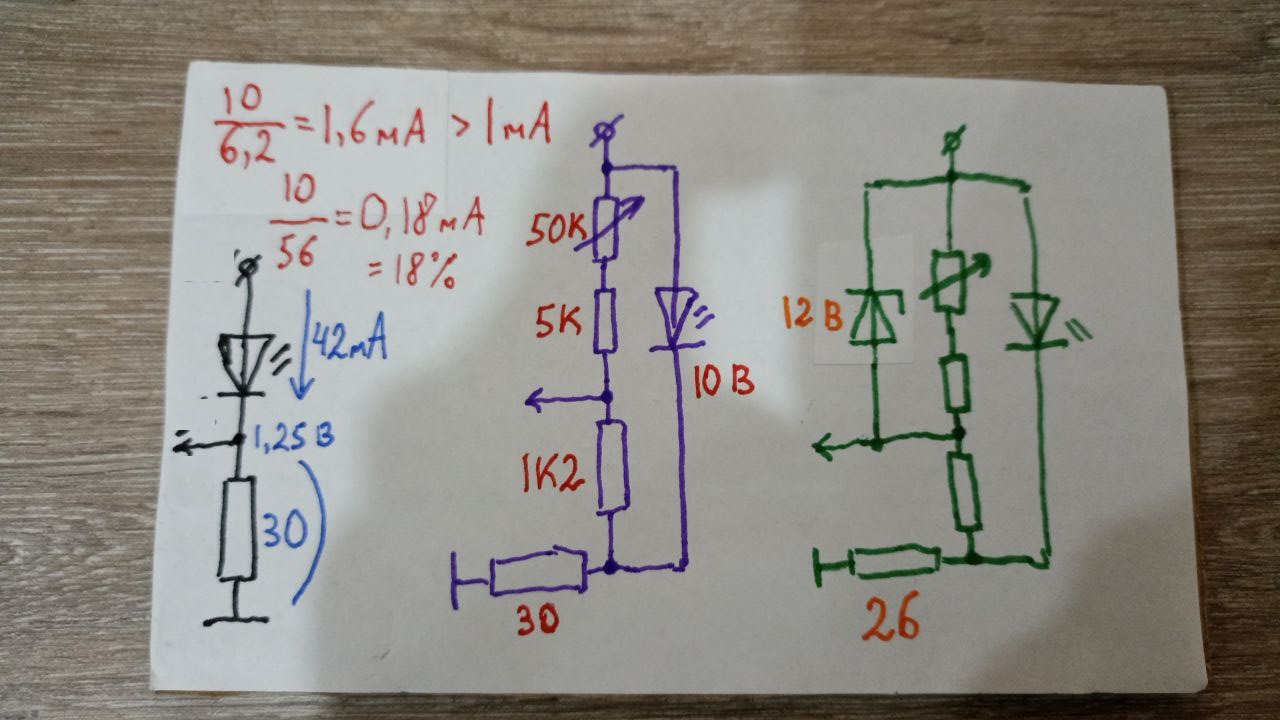 10
6,2
=1,6мА > 1мА
10
56
=0,18мА
=18%
42мА
1,25 В
30
50К
5К
1К2
10 В
30
12 В
26